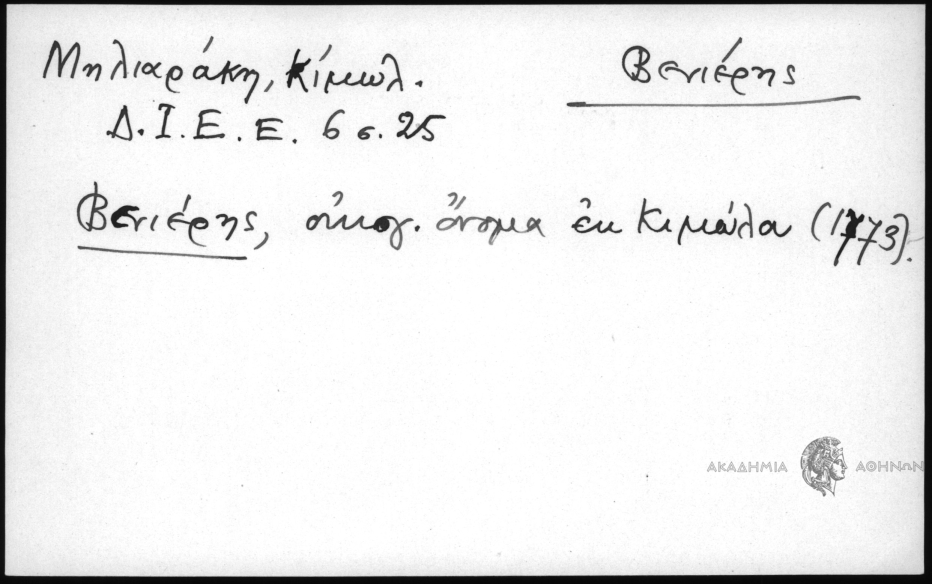 Μηλιαράκη, Κίμωλ.
Βενιέρης
Δ.Ι.Ε.Ε. 6 σ. 25
Βενιέρης, οἰκογ. ὄνομα ἐκ Κιμώλου (1773).
ΑΚΑΔΗΜΙΑ ΑΘΗΝΩΝ